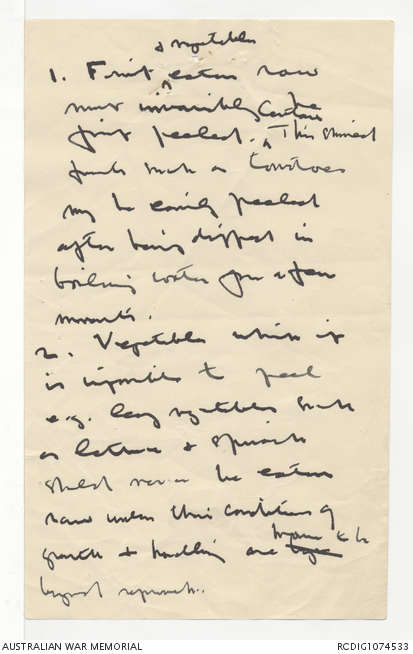 & vegetables
1. Fruit ^ eaten raw
must invariably be
first peeled. ^ Certain Thin skinned
fruits such as tomatoes
may be easily peeled
after being dipped in
boiling water for a few
moments.
2. Vegetables which it
is impossible to peel
e.g. leafy vegetables such
as lettuce & spinach
should never be eaten
raw unless their conditions of
growth & handling are known to be
beyond reproach.
AUSTRALIAN WAR MEMORIAL
RCDIG1074533